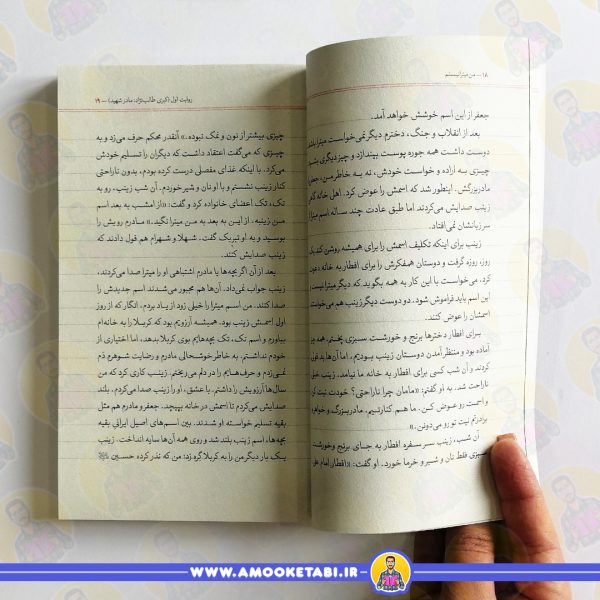 ۱۸ — من میترا نیستم
جعفر از این اسم خوشش خواهد آمد.
بعد از انقلاب و جنگ، دخترم دیگر نمی‌خواست میترا باشد.
دوست داشت همه جوره پوست بیندازد و چیز دیگری بشود؛
چیزی به اراده و خواست خودش، نه به خاطر من، جعفر یا
مادربزرگش. اینطور شد که اسمش را عوض کرد. اهل خانه گاهی
زینب صدایش می‌کردند اما طبق عادت چند ساله اسم میترا از
سر زبانشان نمی‌افتاد.
زینب برای اینکه تکلیف اسمش را برای همیشه روشن کند یک
روز، روزه گرفت و دوستان همفکرش را برای افطار به خانه دعوت
کرد. می‌خواست با این کار به همه بگوید که دیگر میترا نیست و
این اسم باید فراموش شود. دو دوست دیگر زینب هم می‌خواستند
اسمشان را عوض کنند.
برای افطار دخترها برنج و خورشت سبزی پختم. همه چیز
آماده بود و منتظر آمدن دوستان زینب بودیم، اما آن‌ها بدقولی
کردند و آن شب کسی برای افطار به خانه ما نیامد. زینب خیلی
ناراحت شد. به او گفتم: «مامان چرا ناراحتی؟ خودت نیت کن
و اسمت رو عوض کن. ما هم کنارتیم. مادربزرگ و خواهر و
برادرام نیت تو رو می‌دونن.»
آن شب، زینب سر سفره افطار به جای برنج و خورشت
سبزی فقط نان و شیر و خرما خورد. او گفت: «افطار امام علی
روایت اول (کبری طالب‌نژاد؛ مادر شهید) — ۱۹
چیزی بیشتر از نون و نمک نبوده.» آنقدر محکم حرف می‌زد و به
چیزی که می‌گفت اعتقاد داشت که دیگران را تسلیم خودش
می‌کرد. با اینکه غذای مفصلی درست کرده بودم، بدون ناراحتی
کنار زینب نشستم و با او نان و شیر خوردم. آن شب زینب، رو به
تک، تک اعضای خانواده کرد و گفت: «از امشب به بعد اسم
من زینبه. از این به بعد به من میترا نگید.» مادرم رویش را
بوسید و به او تبریک گفت. شهلا و شهرام هم قول دادند که
زینب صدایش کنند.
بعد از آن اگر بچه‌ها یا مادرم اشتباهی او را میترا صدا می‌کردند،
زینب جواب نمی‌داد. آن‌ها هم مجبور می‌شدند اسم جدیدش را
صدا کنند. من اسم میترا را خیلی زود از یاد بردم. انگار که از روز
اول اسمش زینب بود. همیشه آرزویم بود که کربلا را به خانه‌ام
بیاورم و اسم تک، تک بچه‌هایم بوی کربلا بدهد. اما اختیاری از
خودم نداشتم. به خاطر خوشحالی مادرم و رضایت شوهرم دَم
نمی‌زدم و حرف‌هایم را در دلم می‌ریختم. زینب کاری کرد که من
سال‌ها آرزویش را داشتم. با عشق، او را زینب صدا می‌کردم. بلند
صدایش می‌کردم تا اسمش در خانه بپیچد. جعفر و مادرم هم مثل
بقیه تسلیم خواسته او شدند. بین اسم‌های اصیل ایرانی بقیه
بچه‌ها، اسم زینب بلند شد و روی همه آن‌ها سایه انداخت. زینب
یک بار دیگر من را به کربلا گره زد؛ من که نذر کرده حسین
WWW.AMOOKETABI.IR